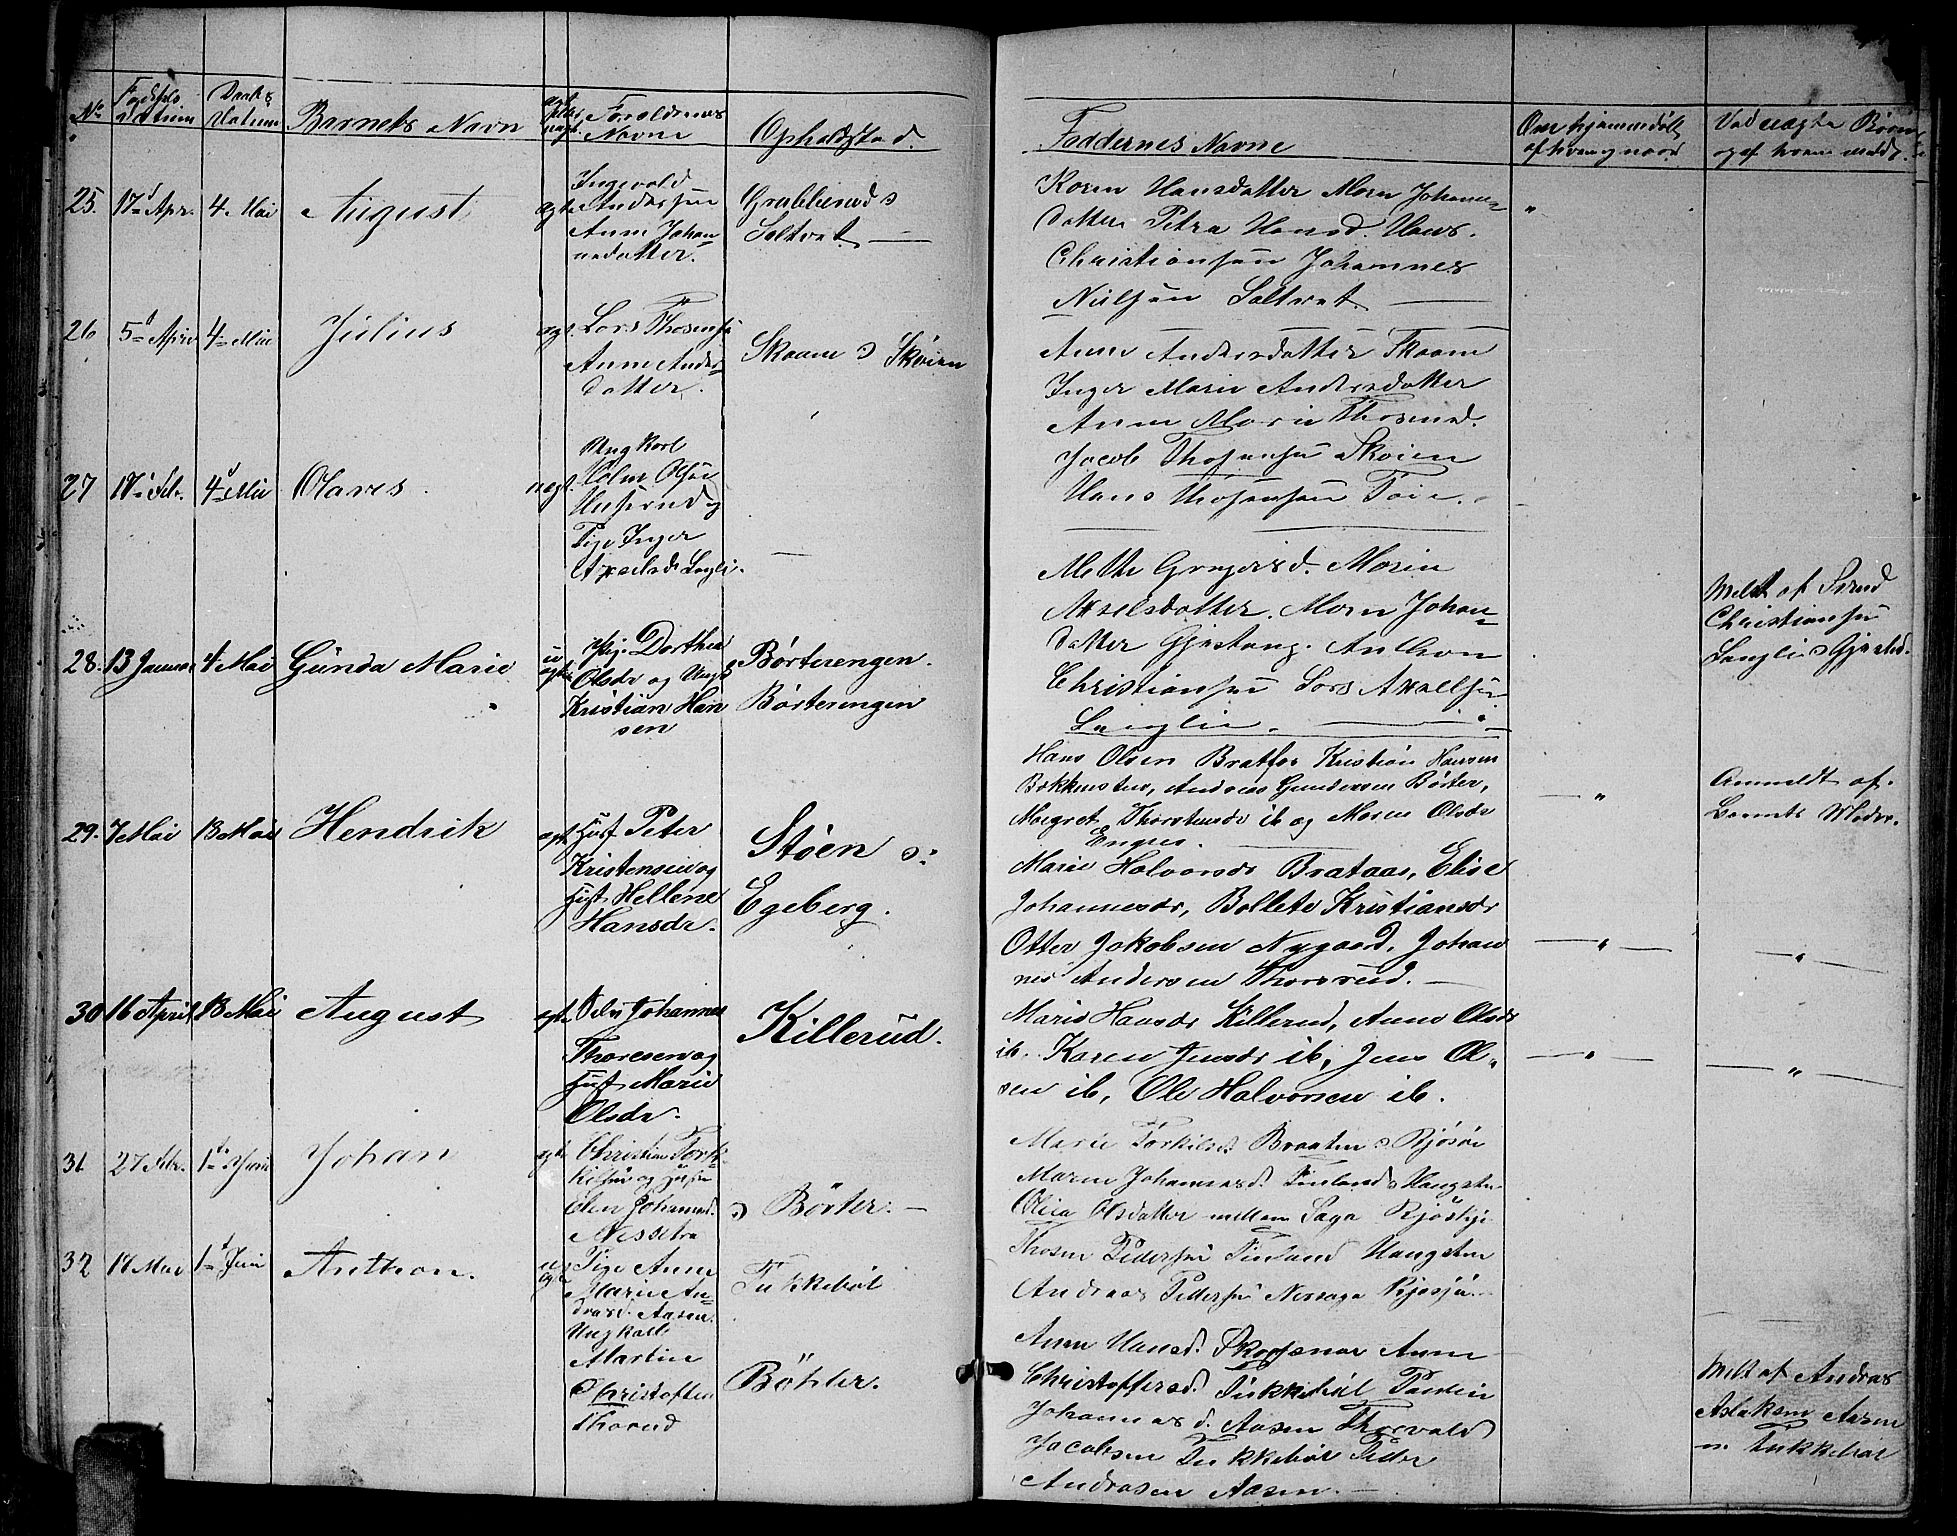 No Fødsels Datum
Daabs Datum
Barnets Navn
Forældrenes Navne
Opholdsted.
Faddernes Navne
Om hjemmedøbt af hvem og naar
Ved uægte Børn og af hvem meldt.
25. 17d Apr. 4. Mai August ægte Ingevald
Andersen
Anne Johan
nedatter.
Grabberød
Saltvet
Karen Hansdatter Maren Johanne
datter Petra Hansd. Hans
Christiansen Johannes
Nielsen Saltvet
26 5d April 4 Mai Julius ægt. Lars Thoresen
Anne Anders
datter.
Skaane Skøien
Anne Andersdatter Skaane
Inger Marie Andersdatter
Anne Marie
Jacob Skøien
Hans
27 17 Feb. 4d Mai Olaves uægt. Ungkarl
Olsen
og
Pige Inger
Axelsd. Lagli.
Mette Gregersd. Maria
Axelsdatter. Maren Johan
datter Gjestang. Anthon
Christiansen Lars Axelsen
Langlie.
Meldt af
Christiansen
Langli Gjersted.
28. 13 Januar 4 Mai Gunda Marie uægte Pige Dorthea
Olsdr og Ungk
Kristian Han
sen
Børterengen.
Børterengen
Hans Olsen Bratfos Kristian Hansen
Bekkensten, Andreas Gundersen Børter,
Margret Thorstensdr ib og Maren Olsdr
Engen.
Anmeldt af
Barnets Moder.
29. 7 Mai 13 Mai Hendrik ægt. Husf Peter
Kristensen og
Hust Hellene
Hansdr.
Støen
Egeberg.
Marie Halvorsdr Brataas, Elise
Johannesdr, Bollete Kristiansdr
Otter Jakobsen Nygaard, Johan
nes Andersen Thorsrud.
30 16 April 13 Mai August ægte Selv Johannes
Thoresen og
Hust Marie
Olsdr.
Killerud.
Marie Hansdr Killerud, Anne Olsdr
ib. Karen Jensdr ib, Jens Ol
sen ib, Ole Halvorsen ib.
31 27 Febr. 1ste Juni Johan ægte Christian Tork
kilsen og Hustru
Elen Johannesd.
Nessetra
Børter.
Marie Torkilsd. Braaten
Maren Johannesd. Finland Hangsten
Olia Olsdatter mellem Saga
Thosten Pedersen Finland Hangsten
Andreas Pedersen Nersaga
32 18 Mai 1ste Juni Anthon. uægte Pige Anne
Marie An
dreasd. Aasen
Ungkarl
Martin
Christoffer
Thorud
Tukkebøl
Bøhler.
Anne Hansd. Anne
Christoffersd. Tukkebøl Paulin
Johannesd. Aasen Thorvald
Jacobsen Tukkebøl Peder
Andresen Aasen.
Meldt af Andreas
Aslaksen Aasen
Tukkebøl